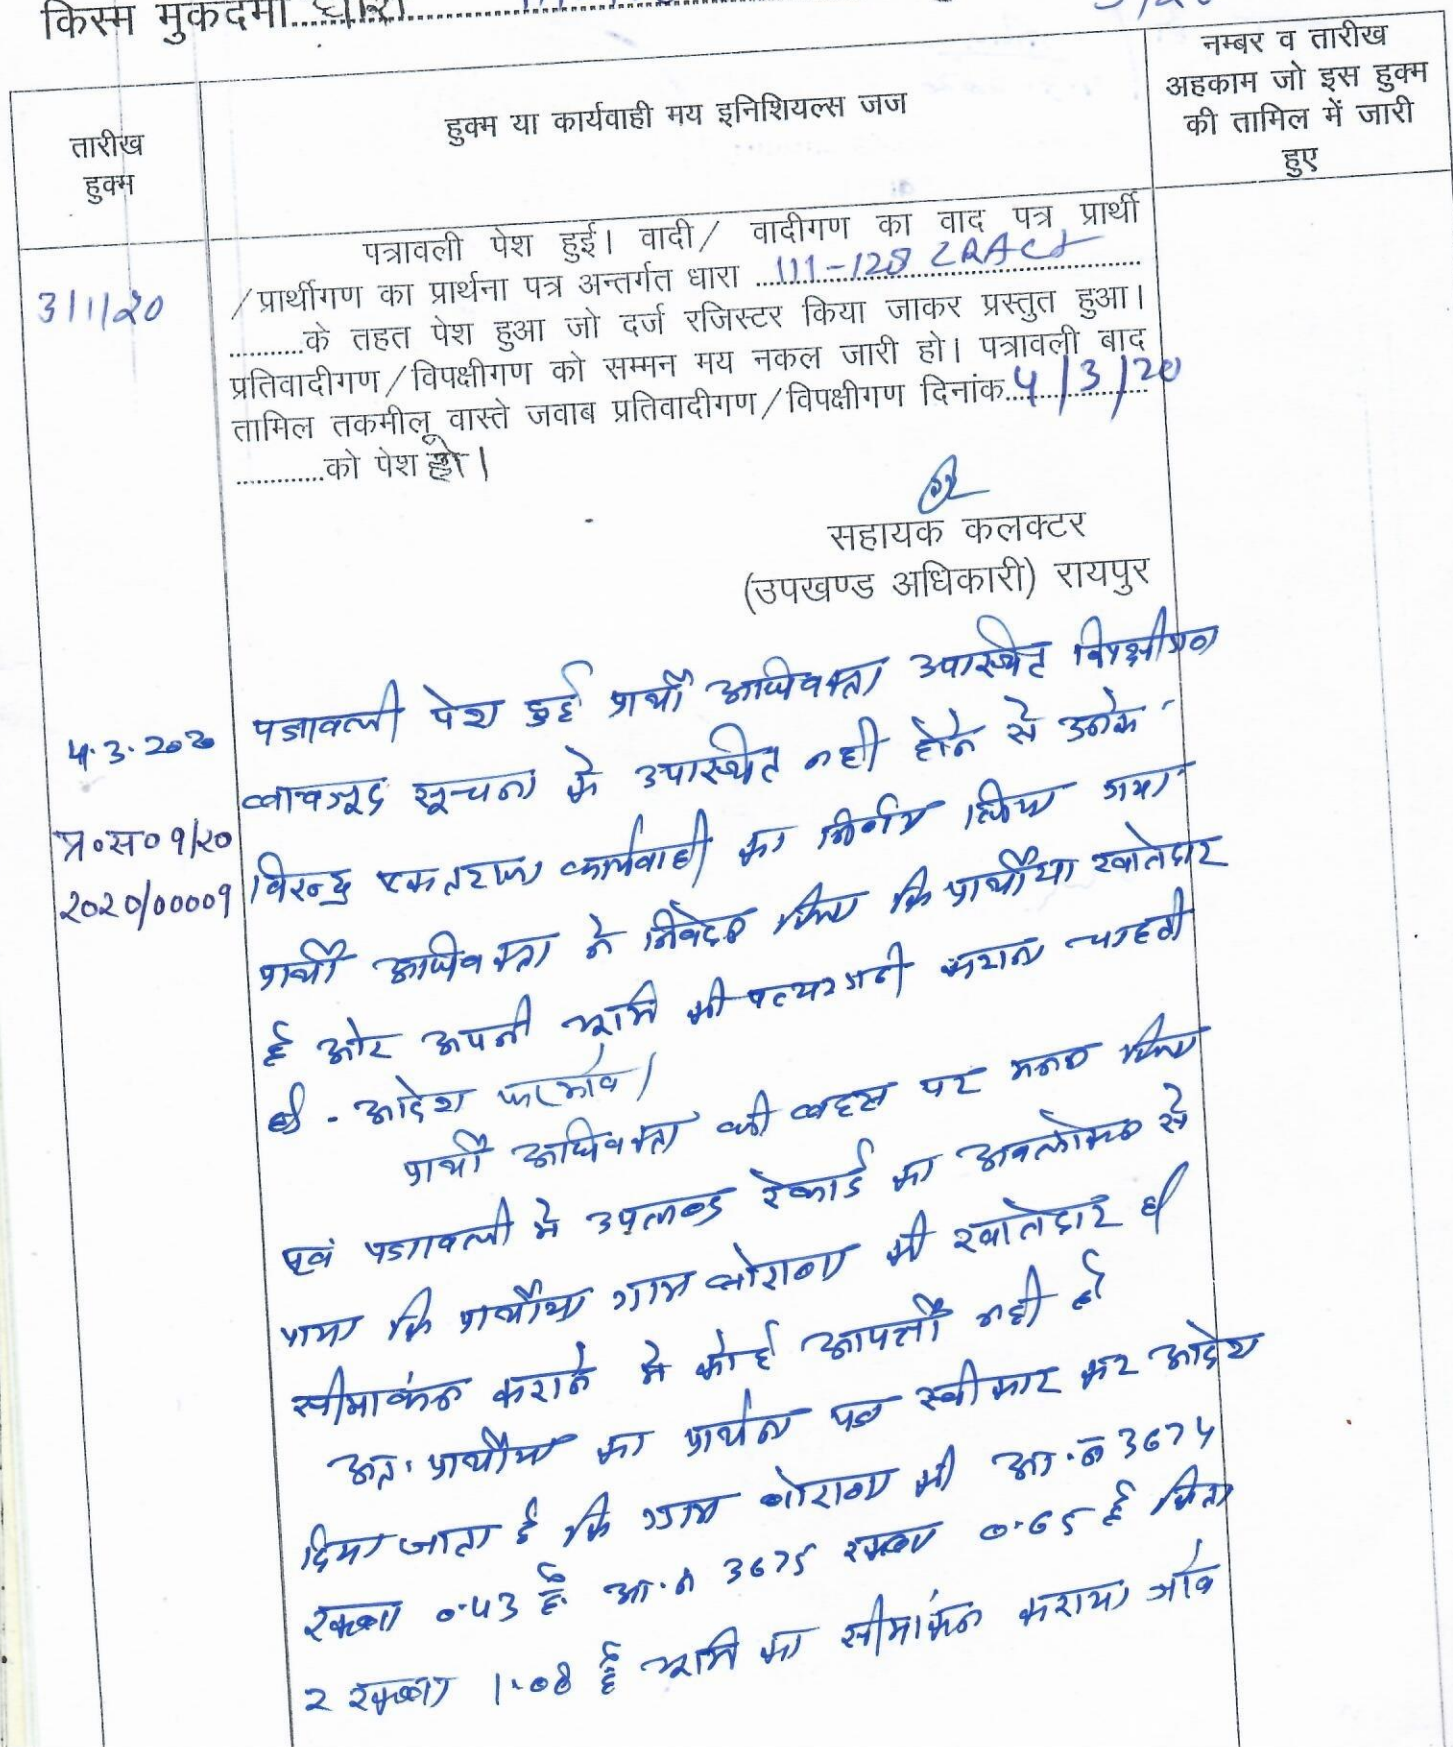 किस्म मुकदमा धारा
तारीख
हुक्म
हुक्म या कार्यवाही मय इनिशियल्स जज
नम्बर व तारीख
अहकाम जो इस हुक्म
की तामिल में जारी
हुए
3/1/20
पत्रावली पेश हुई। वादी/ वादीगण का वाद पत्र प्रार्थी
/प्रार्थीगण का प्रार्थना पत्र अन्तर्गत धारा 111-128 LRACT
...........के तहत पेश हुआ जो दर्ज रजिस्टर किया जाकर प्रस्तुत हुआ।
प्रतिवादीगण/विपक्षीगण को सम्मन मय नकल जारी हो। पत्रावली बाद
तामिल तकमील वास्ते जवाब प्रतिवादीगण/विपक्षीगण दिनांक 4/3/20
.............को पेश हो।
सहायक कलक्टर
(उपखण्ड अधिकारी) रायपुर
4.3.2020
प्र॰स॰ 9/20
2020/00009
पत्रावली पेश हुई प्रार्थी अधिवक्ता उपस्थित विपक्षीगण
बावजूद सूचना के उपस्थित नही होने से उनके
विरुद्ध एकतरफा कार्यवाही का निर्णय लिया गया
प्रार्थी अधिवक्ता ने निवेदन किया कि प्रार्थीया खातेदार
है ओर अपनी भूमि की पत्थरगढी कराना चाहती
है - आदेश फरमावे।
प्रार्थी अधिवक्ता की बहस पर मनन किया
एवं पत्रावली मे उपलब्ध रेकार्ड का अवलोकन से
पाया कि प्रार्थीया ग्राम बोराणा की खातेदार है
सीमाकंन कराने मे कोई आपत्ती नही है
अतः प्रार्थीया का प्रार्थना पत्र स्वीकार कर आदेश
दिया जाता है कि ग्राम बोराणा की आ.न 3674
रकबा 0.43 है. आ.न 3675 रकबा 0.65 है किता
2 रकबा 1.08 है भूमि का सीमाकंन कराया जावे